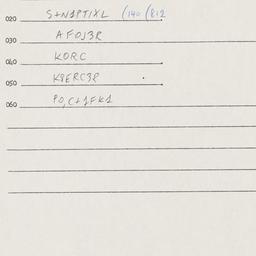 020 S+N1PTIXL (140 (812
030 AFOJ3R
040 KORC
050 K8ERC38
060 PO,C+1FK1